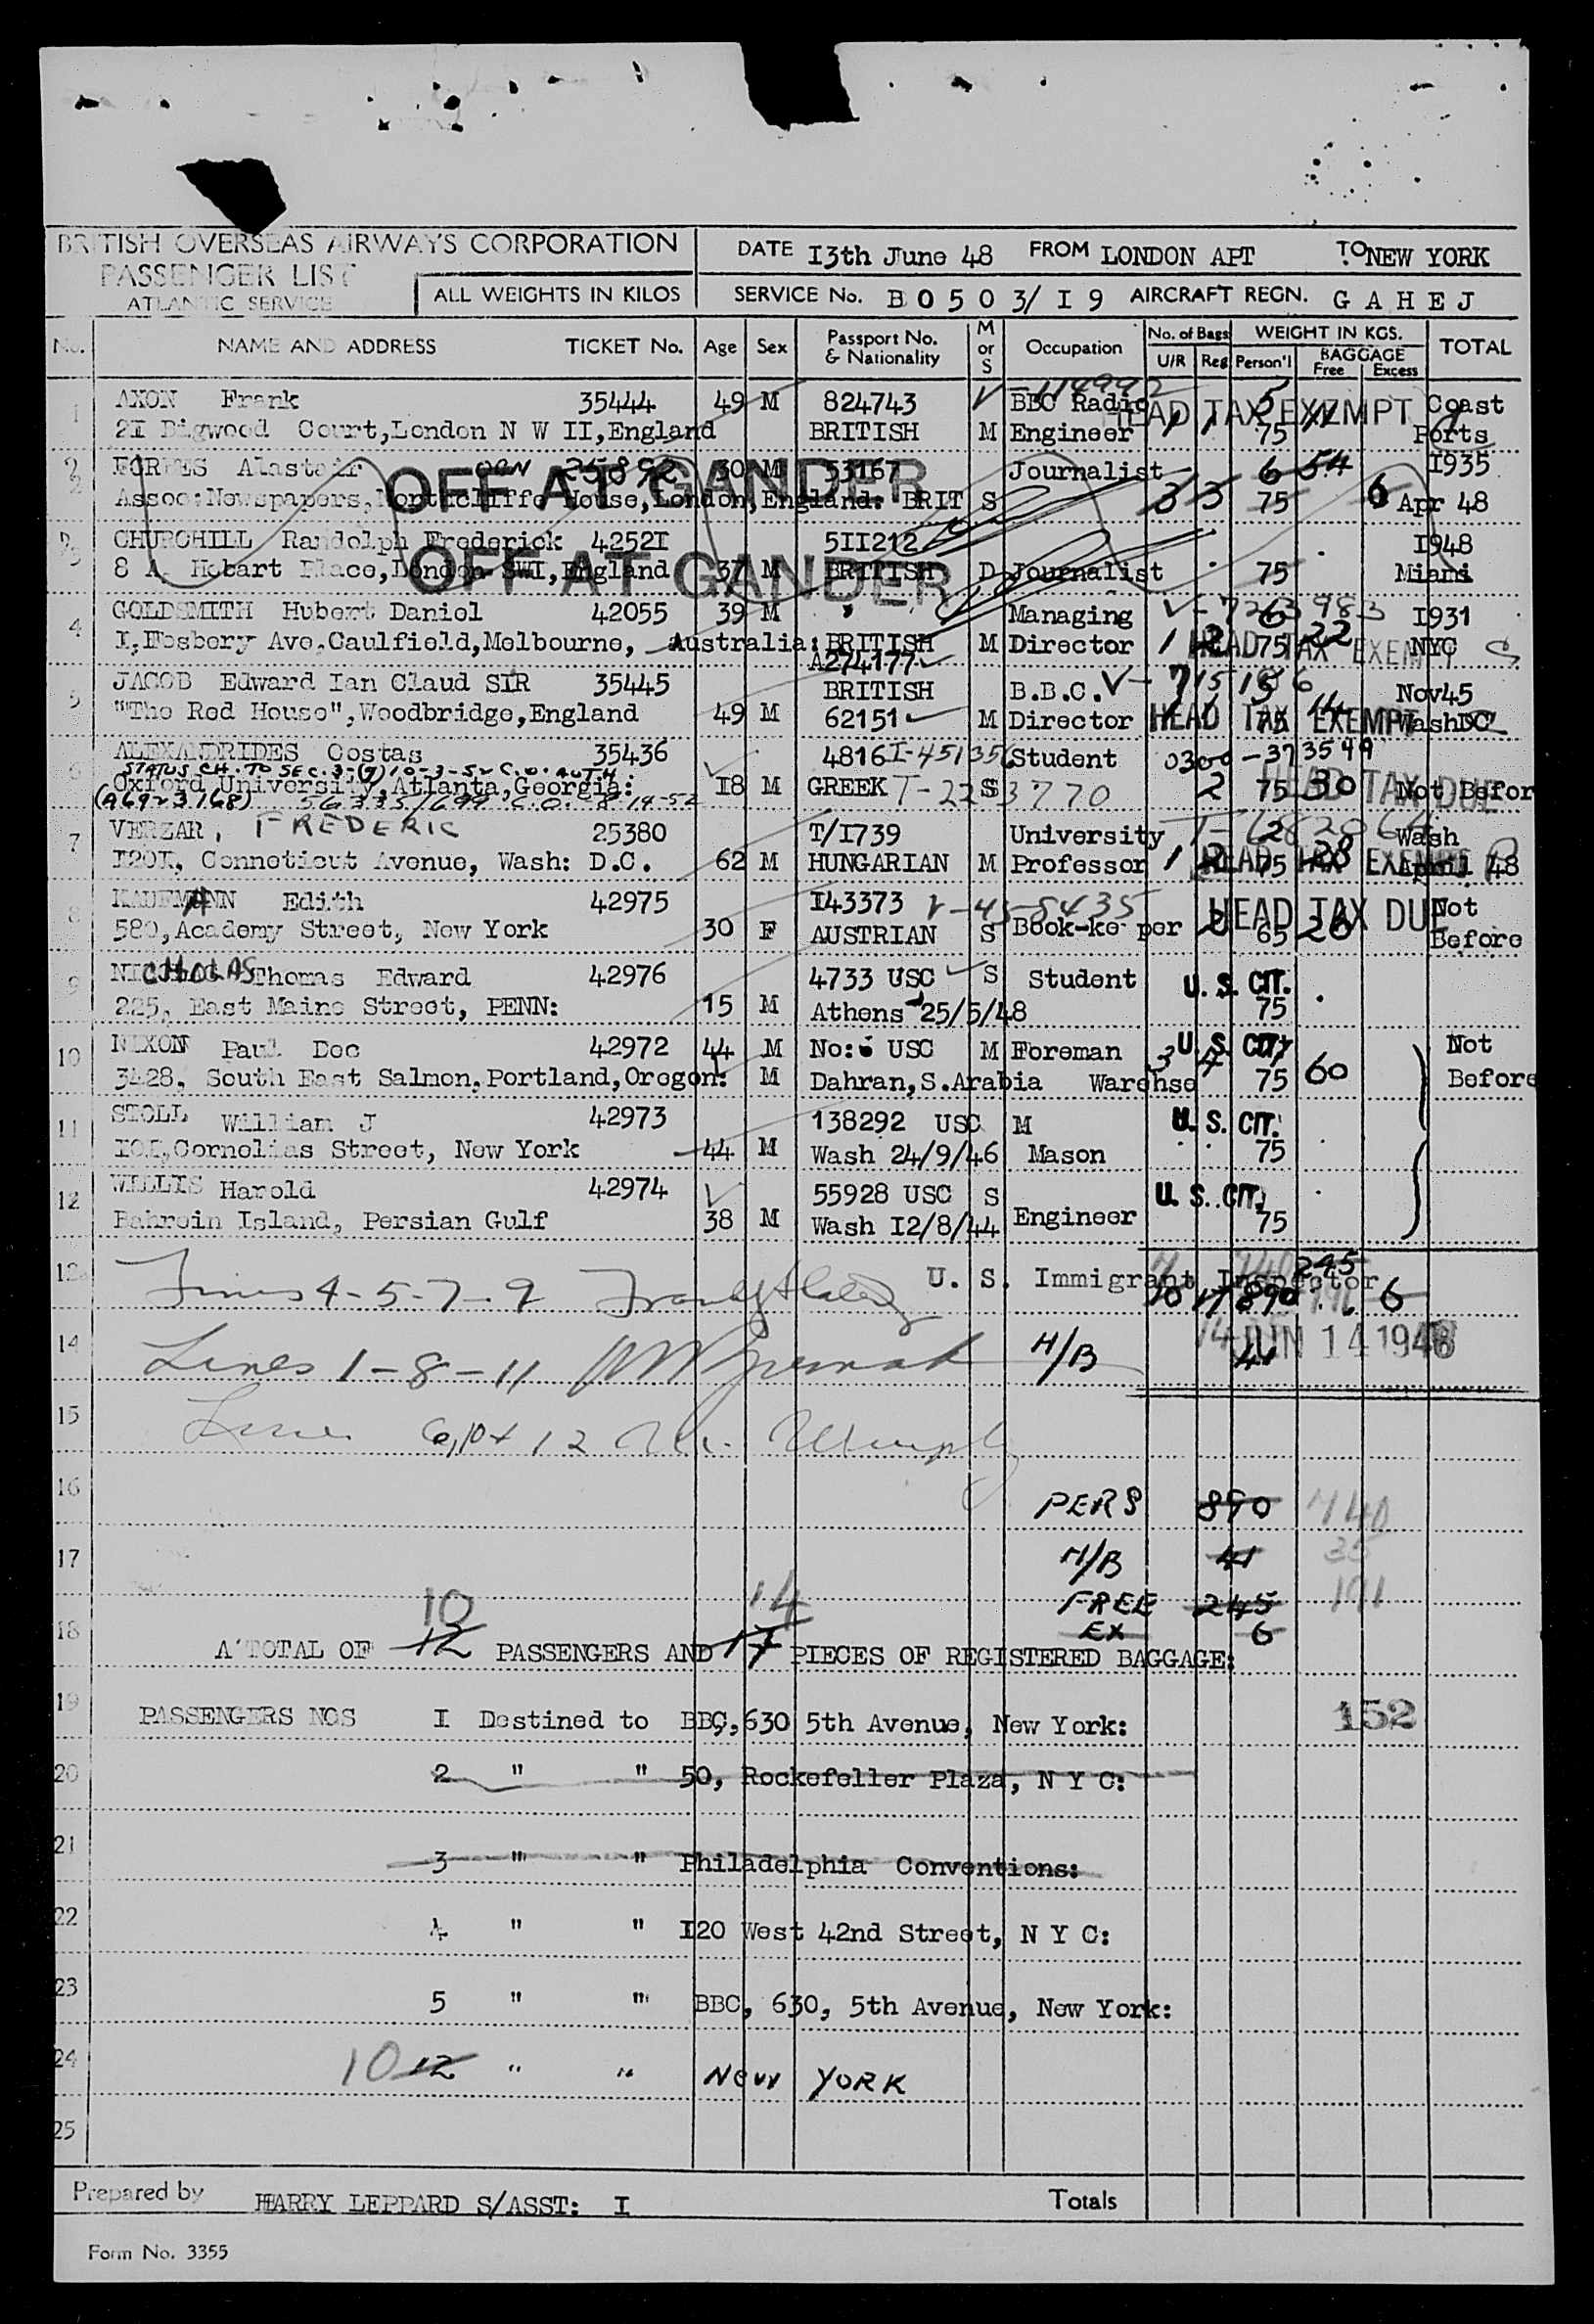 BRITISH OVERSEAS AIRWAYS CORPORATION
PASSENGER LIST
ATLANTIC SERVICE
ALL WEIGHTS IN KILOS
DATE 13th June 48 FROM LONDON APT TO NEW YORK
SERVICE No. B 0 5 0 3/ I 9 AIRCRAFT REGN. G A H E J
No. NAME AND ADDRESS TICKET No. Age Sex Passport No. & Nationality M or S Occupation No. of Bags U/R Reg WEIGHT IN KGS. Person'l BAGGAGE Free Excess TOTAL
1 AXON Frank 35444 49 M 824743 BBC Radio 5 Coast
2I Bigwood Court,London N W II,England BRITISH M Engineer 1 1 75 Ports
HEAD TAX EXEMPT
2 FORBES Alastair 25892 30 M 53167 Journalist 6 54 I935
Assoc:Newspapers,Northcliffe House,London,England: BRIT S 3 3 75 6 Apr 48
OFF AT GANDER
3 CHURCHILL Randolph Frederick 4252I 5II212 I948
8 A Hobart Place,London SWI,England 37 M BRITISH D Journalist 75 Miami
OFF AT GANDER
4 GOLDSMITH Hubert Daniel 42055 39 M " Managing 6 I931
I,Fosbery Ave,Caulfield,Melbourne, Australia: BRITISH M Director 1 2 75 22 NYC
HEAD TAX EXEMPT
A274177
5 JACOB Edward Ian Claud SIR 35445 BRITISH B.B.C. V-715186 Nov45
"The Red House",Woodbridge,England 49 M 62151 M Director 75 14 WashDC
HEAD TAX EXEMPT
6 ALEXANDRIDES Costas 35436 4816 I-45135 Student 0300-373599
STATUS CH. TO SEC. 3-(7) 10-3-52 C.O. AUTH
Oxford University,Atlanta,Georgia: I8 M GREEK T-2253770 S 2 75 30 Not Befor
(A6923168)
HEAD TAX DUE
7 VERZAR, FREDERIC 25380 T/I739 University 2 Wash
I20I, Conneticut Avenue, Wash: D.C. 62 M HUNGARIAN M Professor 1 2 75 28 April 48
HEAD TAX EXEMPT
8 KAUFMANN Edith 42975 I43373 V-455435 Not
580,Academy Street, New York 30 F AUSTRIAN S Book-keeper 2 65 26 Before
HEAD TAX DUE
9 NICHOLAS Thomas Edward 42976 4733 USC S Student U. S. CIT.
225, East Maine Street, PENN: 15 M Athens 25/5/48 75
10 NIXON Paul Dec 42972 44 M No: USC M Foreman U. S. CIT. Not
3428, South East Salmon,Portland,Oregon: M Dahran,S.Arabia Warehse 3 4 75 60 Before
11 STOLL William J 42973 138292 USC M U. S. CIT.
IOI,Cornelias Street, New York 44 M Wash 24/9/46 Mason 75
12 WILLIS Harold 42974 55928 USC S U. S. CIT.
Bahrein Island, Persian Gulf 38 M Wash I2/8/44 Engineer 75
13 Lines 4-5-7-9 U. S. Immigrant Inspector 245
10 17 890 6
14 Lines 1-8-11 H/B 41 JUN 14 1948
15 Line 6,10+12
16 PERS 890 740
17 H/B 41 35
FREE 245 191
10 14
18 A TOTAL OF 12 PASSENGERS AND 17 PIECES OF REGISTERED BAGGAGE: EX 6
19 PASSENGERS NOS I Destined to BBC,630 5th Avenue, New York: 152
20 2 " " 50, Rockefeller Plaza, N Y C:
21 3 " " Philadelphia Conventions:
22 4 " " I20 West 42nd Street, N Y C:
23 5 " " BBC, 630, 5th Avenue, New York:
24 10 12 " " New YORK
25
Prepared by HARRY LEPPARD S/ASST: I Totals
Form No. 3355